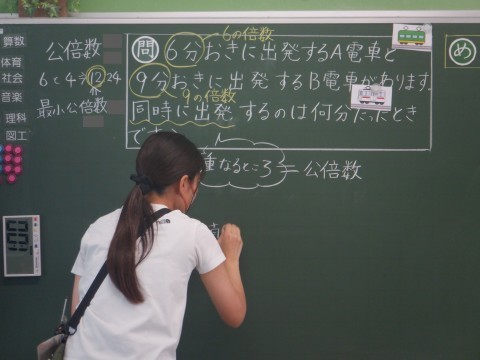 算数
体育
社会
音楽
理科
図工
公倍数
6と4 ⑫ 24
最小公倍数
6の倍数
問 6分おきに出発するA電車と
9分おきに出発するB電車があります。
9の倍数
同時に出発するのは何分たったとき
で
重なるところ=公倍数
め